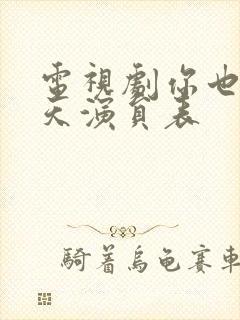 電視劇你也
天演員表
騎著烏龜賽車